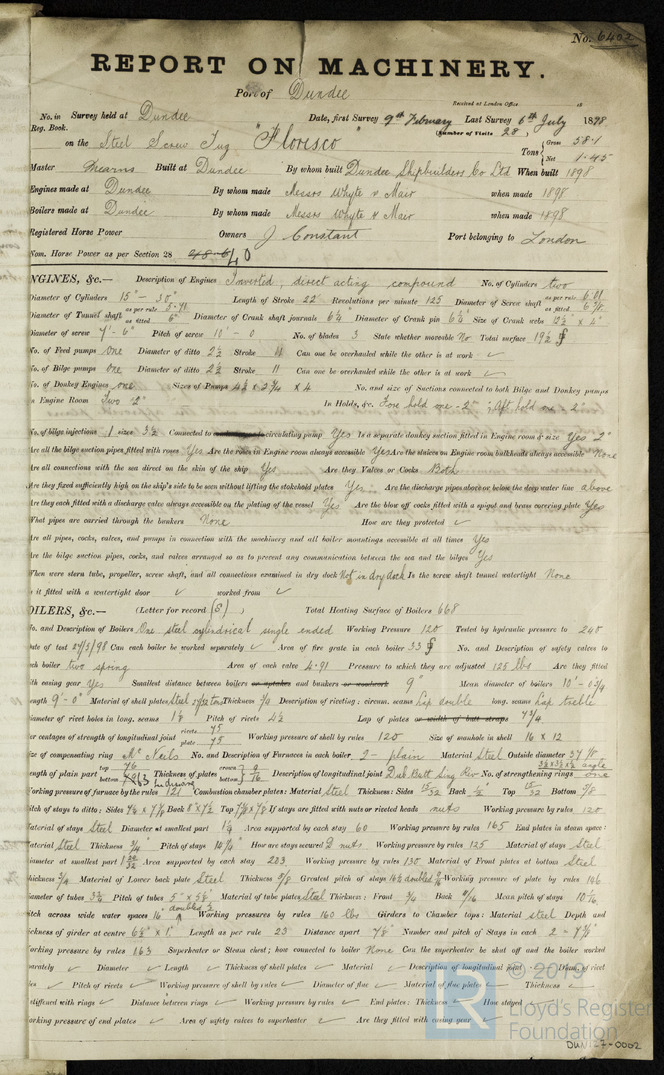 No. 6402
REPORT ON MACHINERY.
Port of Dundee
Received at London Office 18
No. in Survey held at Dundee Date, first Survey 9th February Last Survey 6th July 1898
Reg. Book. (Number of Visits 28)
on the Steel Screw Tug "Florisco" Tons Gross 58.1 Net 1.45
Master Mearns Built at Dundee By whom built Dundee Shipbuilders Co Ltd When built 1898
Engines made at Dundee By whom made Messrs Whyte & Mair when made 1898
Boilers made at Dundee By whom made Messrs Whyte & Mair when made 1898
Registered Horse Power Owners J. Constant Port belonging to London
Nom. Horse Power as per Section 28 40
NGINES, &c.— Description of Engines Inverted, direct acting compound No. of Cylinders two
Diameter of Cylinders 15" - 30" Length of Stroke 22" Revolutions per minute 125 Diameter of Screw shaft as per rule 6.01 as fitted 6 7/8
Diameter of Tunnel shaft as per rule 5.71 as fitted 6" Diameter of Crank shaft journals 6 1/4" Diameter of Crank pin 6 1/4" Size of Crank webs 12 1/2 x 4"
Diameter of screw 7'-6" Pitch of screw 10'-0 No. of blades 3 State whether moveable No Total surface 19 1/2
No. of Feed pumps One Diameter of ditto 2 1/2 Stroke 11 Can one be overhauled while the other is at work ✓
No. of Bilge pumps One Diameter of ditto 2 1/2 Stroke 11 Can one be overhauled while the other is at work ✓
No. of Donkey Engines One Sizes of Pumps 4 1/2 x 2 3/4 x 4 No. and size of Suctions connected to both Bilge and Donkey pumps
n Engine Room Two 2" In Holds, &c. Fore hold one - 2"; Aft hold one - 2"
No. of bilge injections 1 sizes 3 1/2 Connected to circulating pump Yes Is a separate donkey suction fitted in Engine room & size Yes 2"
Are all the bilge suction pipes fitted with roses Yes Are the roses in Engine room always accessible Yes Are the sluices on Engine room bulkheads always accessible None
Are all connections with the sea direct on the skin of the ship Yes Are they Valves or Cocks Both
Are they fixed sufficiently high on the ship's side to be seen without lifting the stokehold plates Yes Are the discharge pipes above or below the deep water line above
Are they each fitted with a discharge valve always accessible on the plating of the vessel Yes Are the blow off cocks fitted with a spigot and brass covering plate Yes
What pipes are carried through the bunkers None How are they protected ✓
Are all pipes, cocks, valves, and pumps in connection with the machinery and all boiler mountings accessible at all times Yes
Are the bilge suction pipes, cocks, and valves arranged so as to prevent any communication between the sea and the bilges Yes
When were stern tube, propeller, screw shaft, and all connections examined in dry dock Not in dry dock Is the screw shaft tunnel watertight None
s it fitted with a watertight door ✓ worked from ✓
OILERS, &c.— (Letter for record (S)) Total Heating Surface of Boilers 668
No. and Description of Boilers One steel cylindrical single ended Working Pressure 120 Tested by hydraulic pressure to 240
Date of test 27/5/98 Can each boiler be worked separately ✓ Area of fire grate in each boiler 33 No. and Description of safety valves to
each boiler two spring Area of each valve 4.91 Pressure to which they are adjusted 125 lbs Are they fitted
with easing gear Yes Smallest distance between boilers or uptakes and bunkers or woodwork 9" Mean diameter of boilers 10'-0 3/4
Length 9'-0" Material of shell plates Steel Thickness 3/4 Description of riveting: circum. seams Lap double long. seams Lap treble
Diameter of rivet holes in long. seams 1 1/8 Pitch of rivets 4 1/2 Lap of plates or width of butt straps 7 3/4
Per centages of strength of longitudinal joint rivets 75 plate 75 Working pressure of shell by rules 120 Size of manhole in shell 16 x 12
Size of compensating ring Mc Neils No. and Description of Furnaces in each boiler 2 - plain Material Steel Outside diameter
Length of plain part top 76 bottom Thickness of plates crown bottom 9/16 Description of longitudinal joint Dub Butt Sing Riv No. of strengthening rings one
Working pressure of furnace by the rules 121 Combustion chamber plates: Material Steel Thickness: Sides 15/32 Back 1/2 Top 15/32 Bottom 7/8
Pitch of stays to ditto: Sides 7 1/2 x 7 7/8 Back 8" x 7 1/2 Top 7 7/8 x 7 5/8 If stays are fitted with nuts or riveted heads nuts Working pressure by rules 120
Material of stays Steel Diameter at smallest part 1 1/4 Area supported by each stay 60 Working pressure by rules 165 End plates in steam space:
Material Steel Thickness 3/4 Pitch of stays 14 1/4" How are stays secured D nuts Working pressure by rules 125 Material of stays Steel
Diameter at smallest part Area supported by each stay 203 Working pressure by rules 130 Material of Front plates at bottom Steel
Thickness 3/4 Material of Lower back plate Steel Thickness 9/8 Greatest pitch of stays Working pressure of plate by rules 146
Diameter of tubes 3 1/4 Pitch of tubes 5" x 5 1/8 Material of tube plates Steel Thickness: Front 3/4 Back 11/16 Mean pitch of stays 10 7/16
Pitch across wide water spaces 16" doubled Working pressures by rules 160 lbs Girders to Chamber tops: Material steel Depth and
thickness of girder at centre 6 1/2 x 1" Length as per rule 23 Distance apart 7 5/8 Number and pitch of Stays in each 2 - 7 7/8"
Working pressure by rules 163 Superheater or Steam chest; how connected to boiler None Can the superheater be shut off and the boiler worked
separately ✓ Diameter ✓ Length ✓ Thickness of shell plates ✓ Material ✓ Description of longitudinal joint ✓ Diam. of rivet
les ✓ Pitch of rivets ✓ Working pressure of shell by rules ✓ Diameter of flue ✓ Material of flue plates ✓ Thickness ✓
stiffened with rings ✓ Distance between rings ✓ Working pressure by rules ✓ End plates: Thickness ✓ How stayed ✓
orking pressure of end plates ✓ Area of safety valves to superheater ✓ Are they fitted with easing gear ✓
© 2019
Lloyd's Register
Foundation
DUN1-7-0002